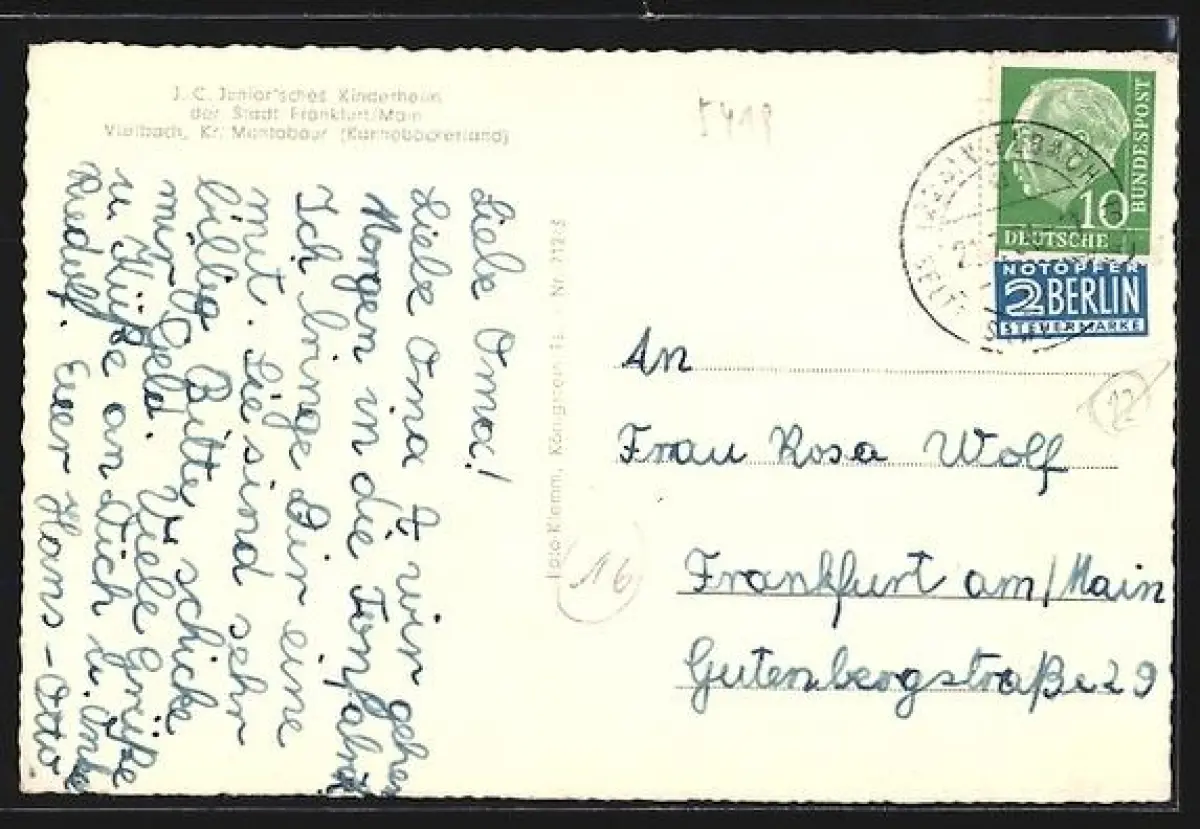 J. C. Junior'sches Kinderheim
der Stadt Frankfurt/Main
Vielbach, Kr. Montabaur (Kannebäckerland)
5419
Liebe Oma!
Liebe Oma wir gehen
Morgen in die
Ich bringe Dir eine
mit. Sie sind sehr
billig. Bitte schicke
mir Geld. Viele Grüße
u. Küße an Dich u. Onkel
Rudolf. Euer Hans-Otto
Foto-Klemm, Königstein Ts. · Nr.
16
DEUTSCHE
BUNDESPOST
10
NOTOPFER
2 BERLIN
STEUERMARKE
12
An
Frau Rosa Wolf
Frankfurt am/Main
Gutenbergstraße 29